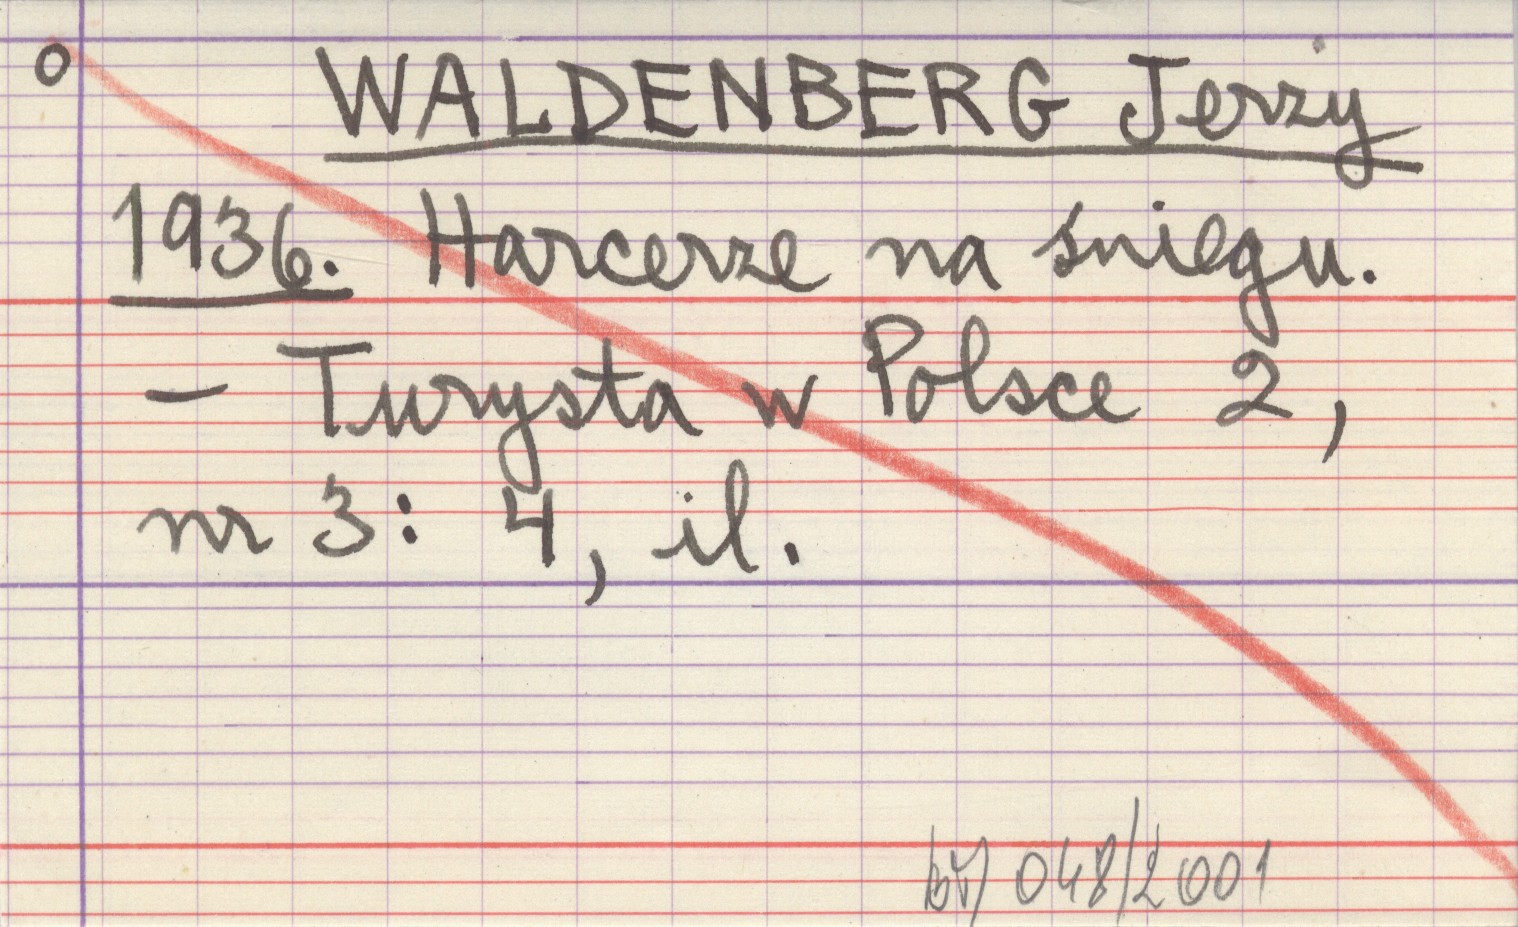 o WALDENBERG Jerzy
1936. Harcerze na śniegu.
– Turysta w Polsce 2,
nr 3: 4, il.
048/2001